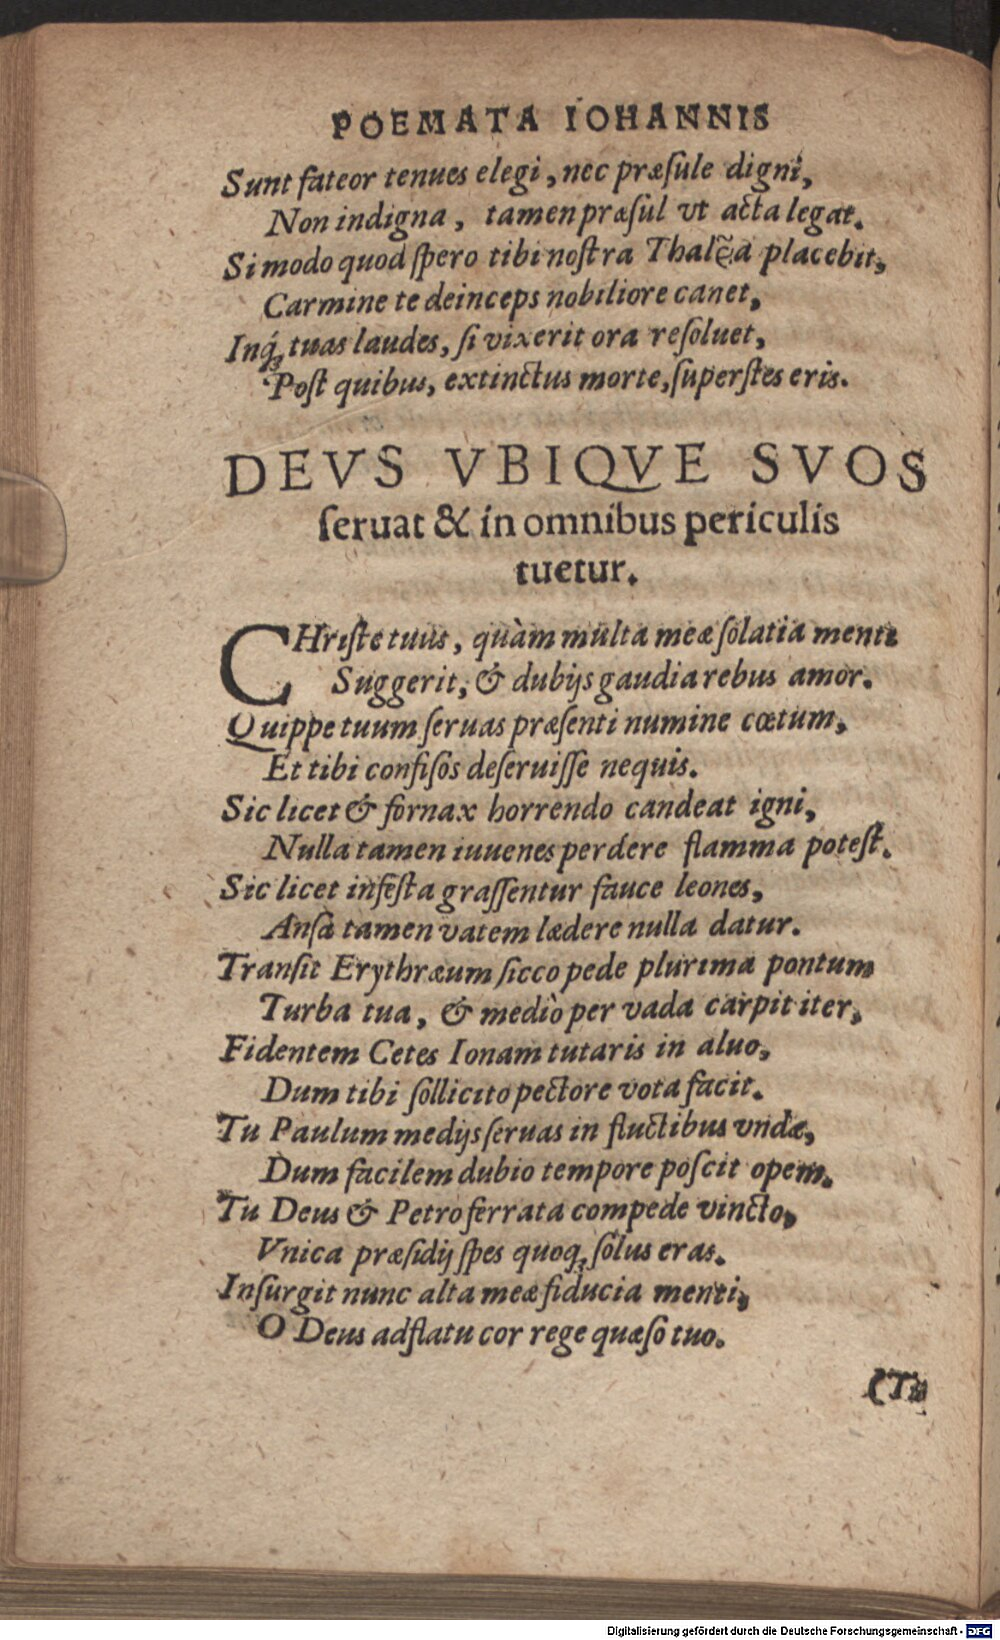 POEMATA IOHANNIS
Sunt fateor tenues elegi, nec præſule digni,
Non indigna, tamen præſul vt acta legat.
Si modo quod ſpero tibi noſtra Thalẽa placebit,
Carmine te deinceps nobiliore canet,
Inq́; tuas laudes, ſi vixerit ora reſoluet,
Poſt quibus, extinctus morte, ſuperſtes eris.
DEVS VBIQVE SVOS
ſeruat & in omnibus periculis
tuetur.
CHriſte tuus, quàm multa meæ ſolatia menti
Suggerit, & dubijs gaudia rebus amor.
Quippe tuum ſeruas præſenti numine cœtum,
Et tibi confiſos deſeruiſſe nequis.
Sic licet & fornax horrendo candeat igni,
Nulla tamen iuuenes perdere flamma poteſt.
Sic licet infeſta graſſentur fauce leones,
Anſa tamen vatem lædere nulla datur.
Tranſit Erythræum ſicco pede plurima pontum
Turba tua, & medio per vada carpit iter,
Fidentem Cetes Ionam tutaris in aluo,
Dum tibi ſollicito pectore vota facit.
Tu Paulum medijs ſeruas in fluctibus vndæ,
Dum facilem dubio tempore poſcit opem.
Tu Deus & Petro ferrata compede vincto,
Vnica præſidij ſpes quoq; ſolus eras.
Inſurgit nunc alta meæ fiducia menti,
O Deus adflatu cor rege quæſo tuo.
(Tu
Digitalisierung gefördert durch die Deutsche Forschungsgemeinschaft - DFG